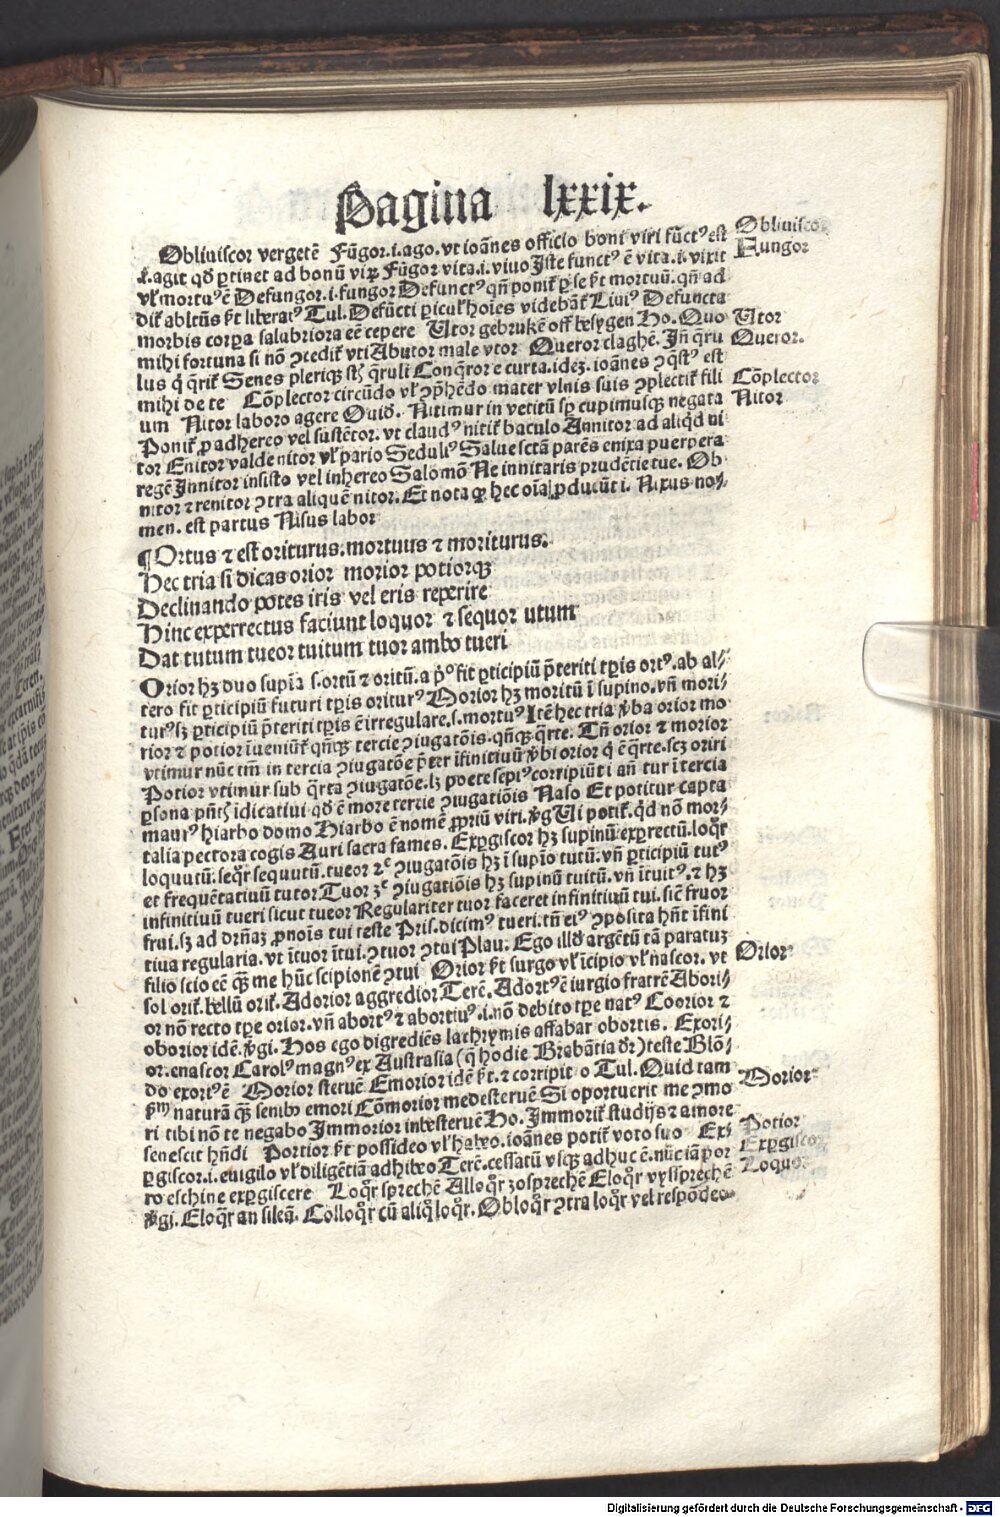 Pagina lxxix.
Obliuiscor vergetē Fūgor.i.ago. vt ioānes officio boni viri fūctꝰ est
.i.agit qđ ꝑtinet ad bonū viꝝ Fūgor vita.i. viuo Iste functꝰ ē vita.i. vixit
vl̄ mortuꝰ ē Defungor.i.fungor Defunctꝰ qn̄ ponit̄ ꝑ se p̄t mortuū. qn̄ ad
morbis corꝑa salubriora eē cepere Utor gebrukē off besygen Ho. Quo
mihi fortuna si nō ꝯcedit̄ vti Abutor male vtor Queror claghē. Jn̄ q̄ru
lus q̇ q̄rit̄ Senes pleriqꝫ st̄ q̄ruli Conq̄ror e curta.ideꝫ. ioānes ꝯq̄stꝰ est
mihi de te Cōplector circūdo vl̄ ꝯp̄hēdo mater vlnis suis ꝯplectit̄ fili
um Nitor laboro agere Ouid. Nitimur in vetitū sꝑ cupimusqꝫ negata
Ponit̄ ꝓ adhereo vel sustētor. vt claudꝰ nitit̄ baculo Annitor ad aliqđ ni
tor Enitor valde nitor vl̄ pario Seduliꝰ Salue sctā parēs enixa puerpera
regē Jnnitor insisto vel inhereo Salomō Ne innitaris prudētie tue. Ob
nitor ⁊ renitor ꝯtra aliquē nitor. Et nota ꝙ hec oīa ꝓducūt i. Nixus no⸗
men. est partus Nisus labor
¶ Ortus ⁊ est oriturus. mortuus ⁊ moriturus.
Hec tria si dicas orior morior potiorqꝫ
Declinando potes iris vel eris reperire
Hinc experrectus faciunt loquor ⁊ sequor utum
Dat tutum tueor tuitum tuor ambo tueri
Orior hꝫ duo supīa s.ortū ⁊ oritū. a p̄º fit ꝑticipiū p̄teriti tꝑis ortꝰ. ab al⸗
tero fit ꝑticipiū futuri tꝑis oriturꝰ Morior hꝫ moritū ī supino. vn̄ mori⸗
turꝰ sꝫ ꝑticipiū p̄teriti tꝑis ē irregulare.s.mortuꝰ Itē hec tria v̄ba orior mo
rior ⁊ potior īueniūt̄ qn̄qꝫ tercie ꝯiugatōis. qn̄qꝫ q̄rte. Tn̄ orior ⁊ morior
vtimur nūc tm̄ in tercia ꝯiugatōe p̄ter īfinitiuū v̄bi orior q̇ ē q̄rte. scꝫ oriri
Potior vtimur sub q̄rta ꝯiugatōe. lꝫ poete sepiꝰ corripiūt i an̄ tur ī tercia
ꝑsona pn̄tꝭ īdicatiui qđ ē more tercie ꝯiugatiōis Naso Et potitur capta
mauꝰ hiarbo domo Hiarbo ē nomē ꝓpriū viri. v̄g Ui potit̄. qđ nō mor⸗
talia pectora cogis Auri sacra fames. Exꝑgiscor hꝫ supinū exꝑrectū. loq̄r
loquutū. seq̄r sequutū. tueor 2ᵉ ꝯiugatōis hꝫ ī supīo tutū. vn̄ ꝑticipiū tutꝰ
et frequētatiuū tutor Tuor 3ᵉ ꝯiugatiōis hꝫ supinū tuitū. vn̄ ītuitꝰ. ⁊ hꝫ
infinitiuū tueri sicut tueor Regulariter tuor faceret infinitiuū tui. sic̄ fruor
frui. sꝫ ad dr̄n̄aꝫ ꝓnoīs tui teste Pris. dicimꝰ tueri. tn̄ eiꝰ ꝯposita hn̄t īfini
tiua regularia. vt ītuor ītui. ꝯtuor ꝯtui Plau. Ego illđ argētū tā paratuꝫ
filio scio eē q̄ꝫ me hūc scipionē ꝯtui Orior p̄t surgo vl̄ īcipio vl̄ nascor. vt
sol orit̄. bellū orit̄. Adorior aggredior Terē. Adortꝰ ē iurgio fratrē Abori⸗
or nō recto tꝑe orior. vn̄ abortꝰ ⁊ abortiuꝰ.i. nō debito tꝑe natꝰ Coorior ⁊
oborior idē. v̄gi. Hos ego digrediēs lachrymis affabar obortis. Exori⸗
or.enascor Carolꝰ magnꝰ ex Australia (q̄ hodie Brabātia dr̄) teste Blō⸗
do exortꝰ ē Morior steruē Emorior idē p̄t. ⁊ corripit o Tul. Quid tam
naturā q̄ꝫ senibꝰ emori Cōmorior medesteruē Si oportuerit me ꝯmo
ri tibi nō te negabo Immorior inbesteruē Ho. Immorit̄ studijs ⁊ amore
senescit hn̄di Portior p̄t possideo vl̄ habeo. ioānes potit̄ voto suo Ex⸗
ꝑgiscor.i. euigilo vl̄ diligētiā adhibeo Terē. cessatū vsqꝫ adhuc ē. nūc iā porro
eschine exꝑgiscere Loq̄r sprechē Alloq̄r zosprechē Eloq̄r vyssprechē
v̄gi. Eloq̄r an sileā. Colloq̄r cū aliq̇ loq̄r. Obloq̄r ꝯtra loq̄r vel respōdeo
Obliuisco
Fungor
Utor
Queror.
Cōplector
Nitor
Orior
Morior
Potior
Exꝑgiscor
Loquor
Digitalisierung gefördert durch die Deutsche Forschungsgemeinschaft - DFG